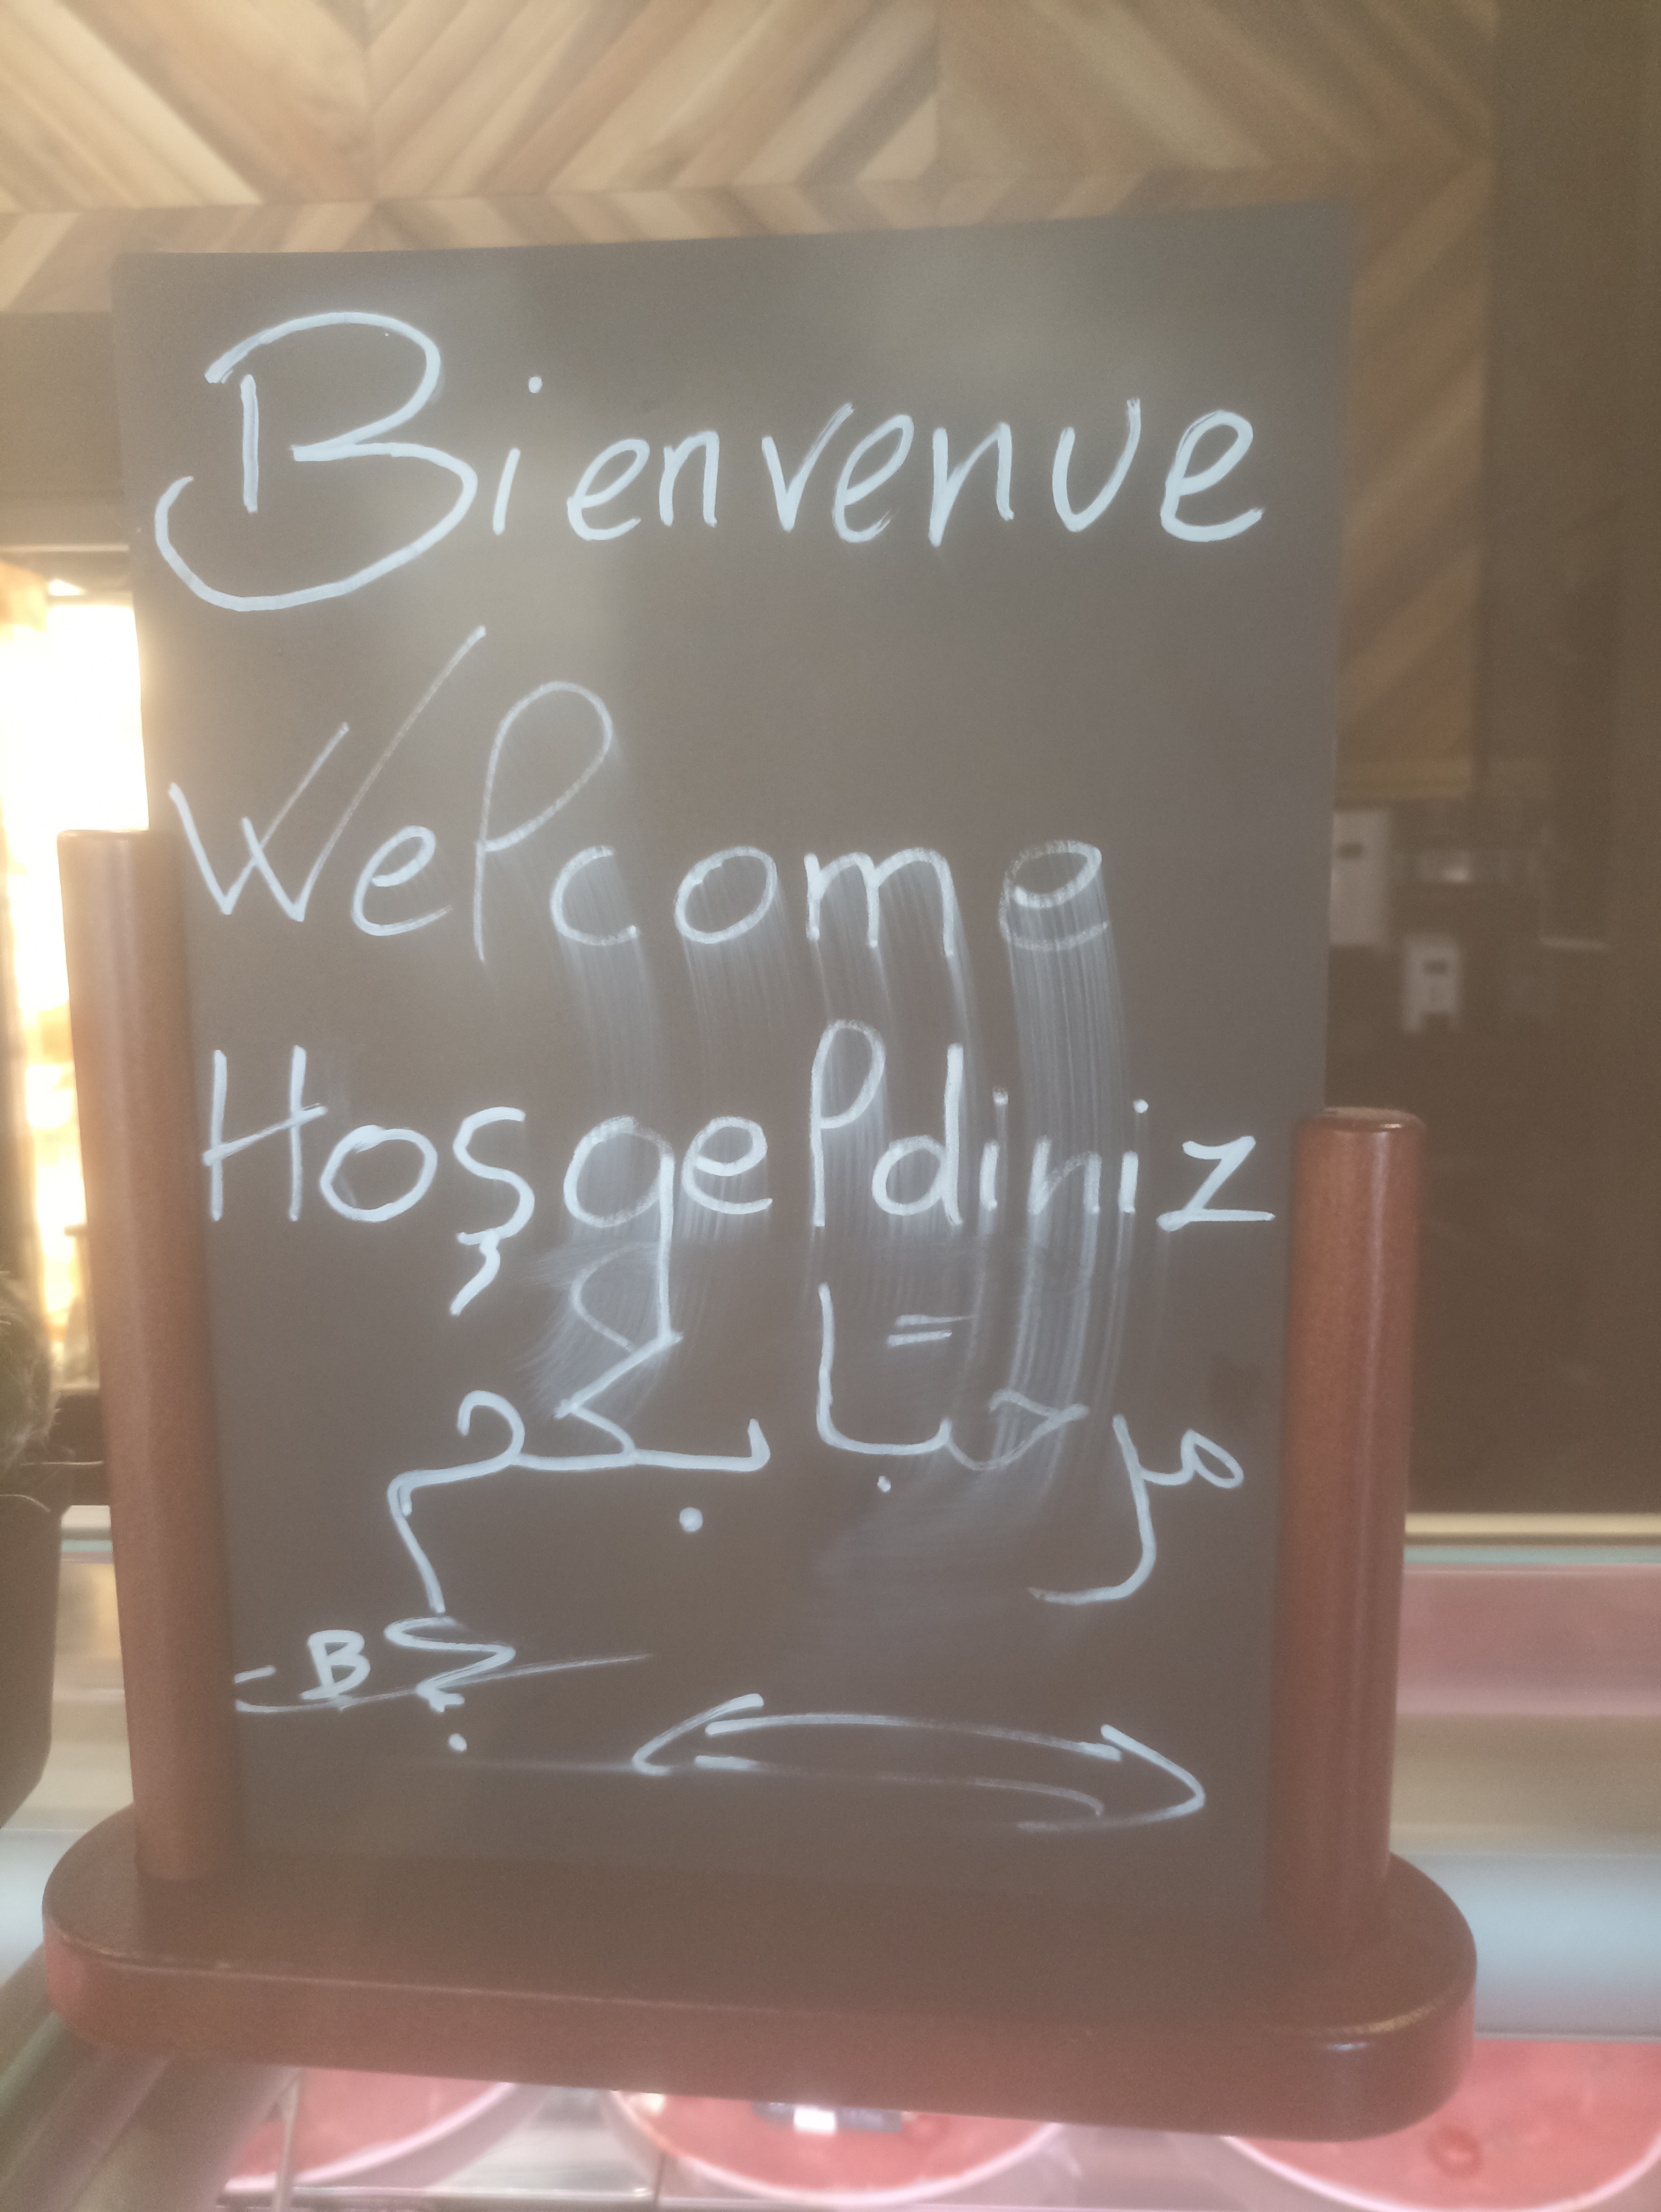 Bienvenue
Welcome
Hoşgeldiniz
مرحباً بكم